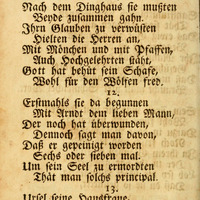 Nach dem Dinghaus sie mußten
Beyde zusammen gahn.
Ihrn Glauben zu verwüsten
Hielten die Herren an,
Mit Mönchen und mit Pfaffen,
Auch Hochgelehrten stäht,
Gott hat behüt sein Schafe,
Wohl für den Wölfen fred.
12.
Erstmahls sie da begunnen
Mit Arndt dem lieben Mann,
Der noch hat überwunden,
Dennoch sagt man davon,
Daß er gepeinigt worden
Sechs oder sieben mal.
Um sein Seel zu ermordten
Thät man solchs principal.
13.
Ursel seine Hausfraue,